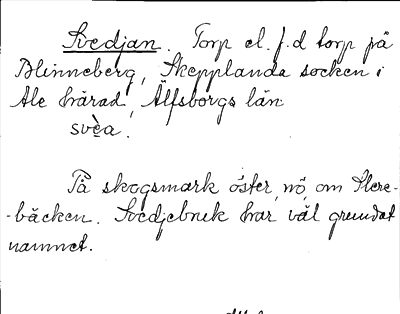 Svedjan. Torp el. f.d torp på
Blinneberg, Skepplanda socken i
Ale härad, Älfsborgs län
svèa.
På skogsmark öster, nö, om Stere-
-bäcken. Svedjebruk har väl grundat
namnet.